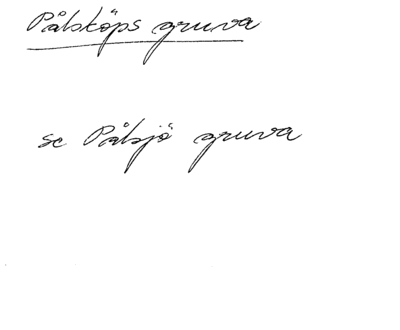 Pålsköps gruva
se Pålsjö gruva